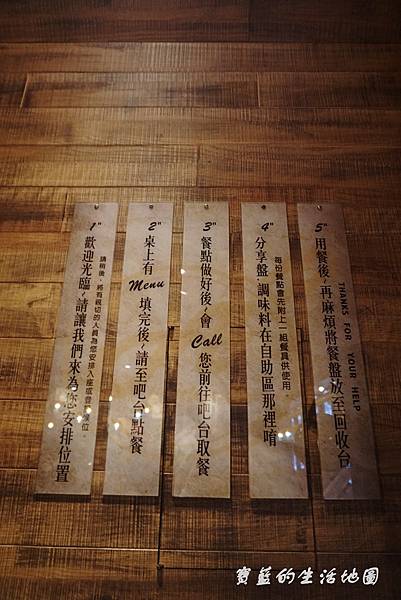 1"
歡迎光臨~請讓我們來為您安排位置
2"
桌上有 Menu 填完後~請至吧台點餐
3"
餐點做好後~會 Call 您前往吧台取餐
4"
分享盤、調味料在自助區那裡唷
每份餐點會先附上一組餐具供使用。
5"
用餐後~再麻煩將餐盤放至回收台
THANKS FOR YOUR HELP
寶藍的生活地圖